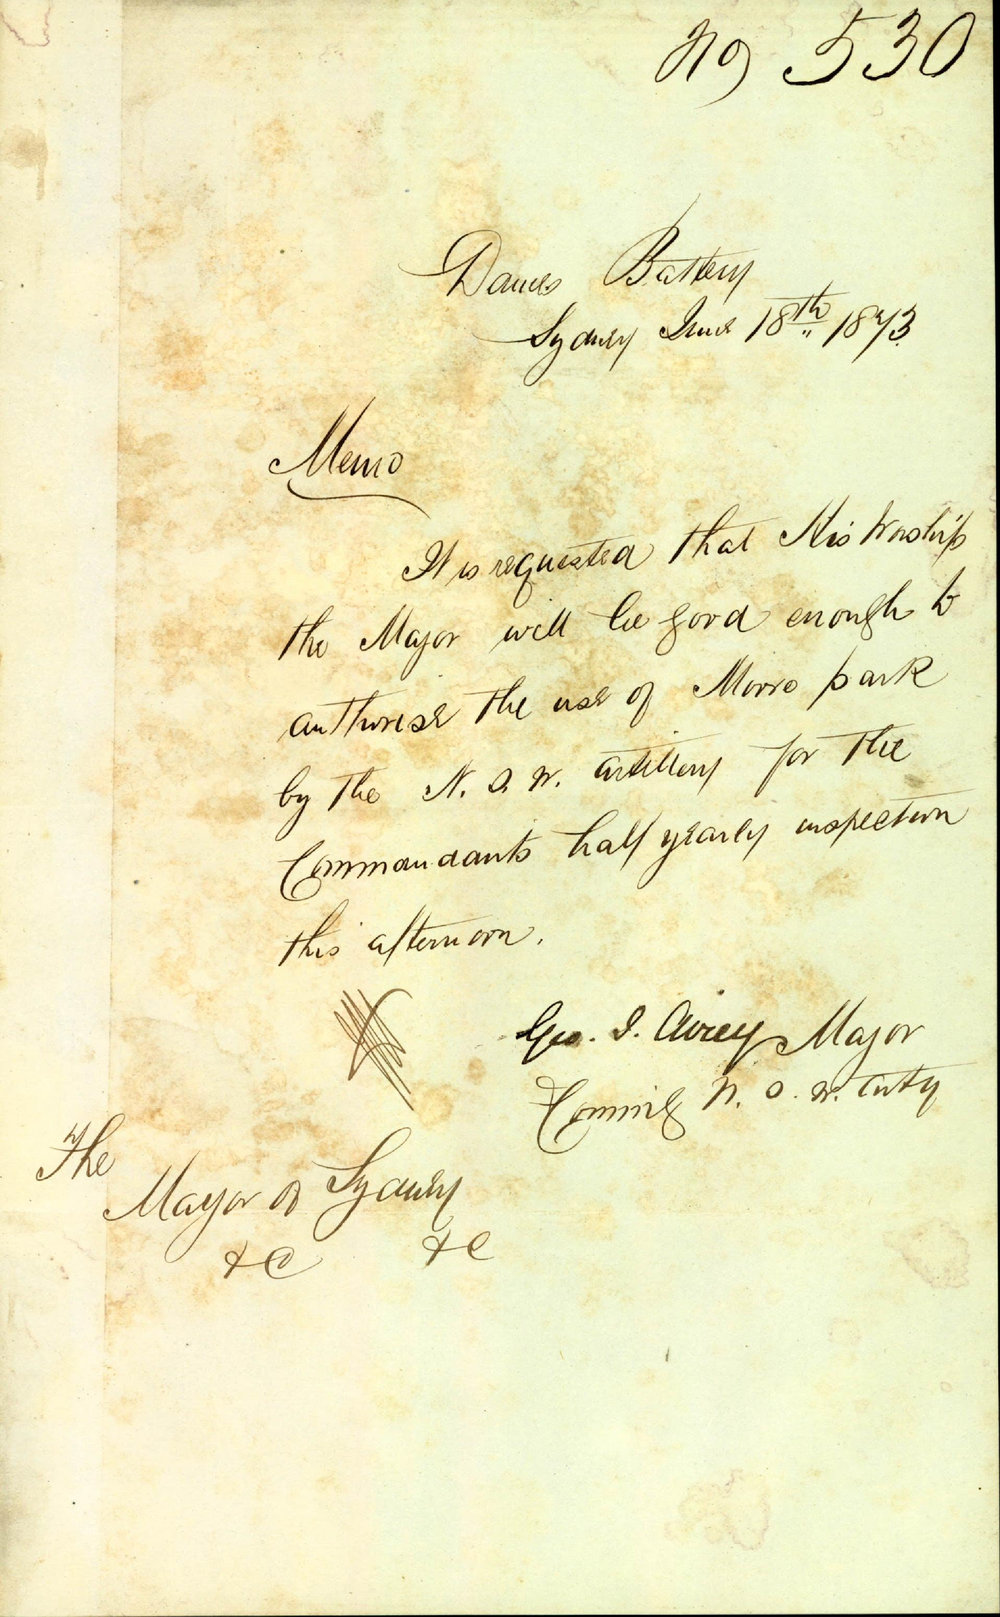 No 530
Dawes Battery
Sydney June 18th 1873
Memo
It is requested that His Worship
the Mayor will be good enough to
authorise the use of Moore park
by the N. S. W. Artillery for the
Commandants half yearly inspection
this afternoon.
Geo. J. Airey Major
Comming N. S. W. Arty
The
Mayor of Sydney
&c &c